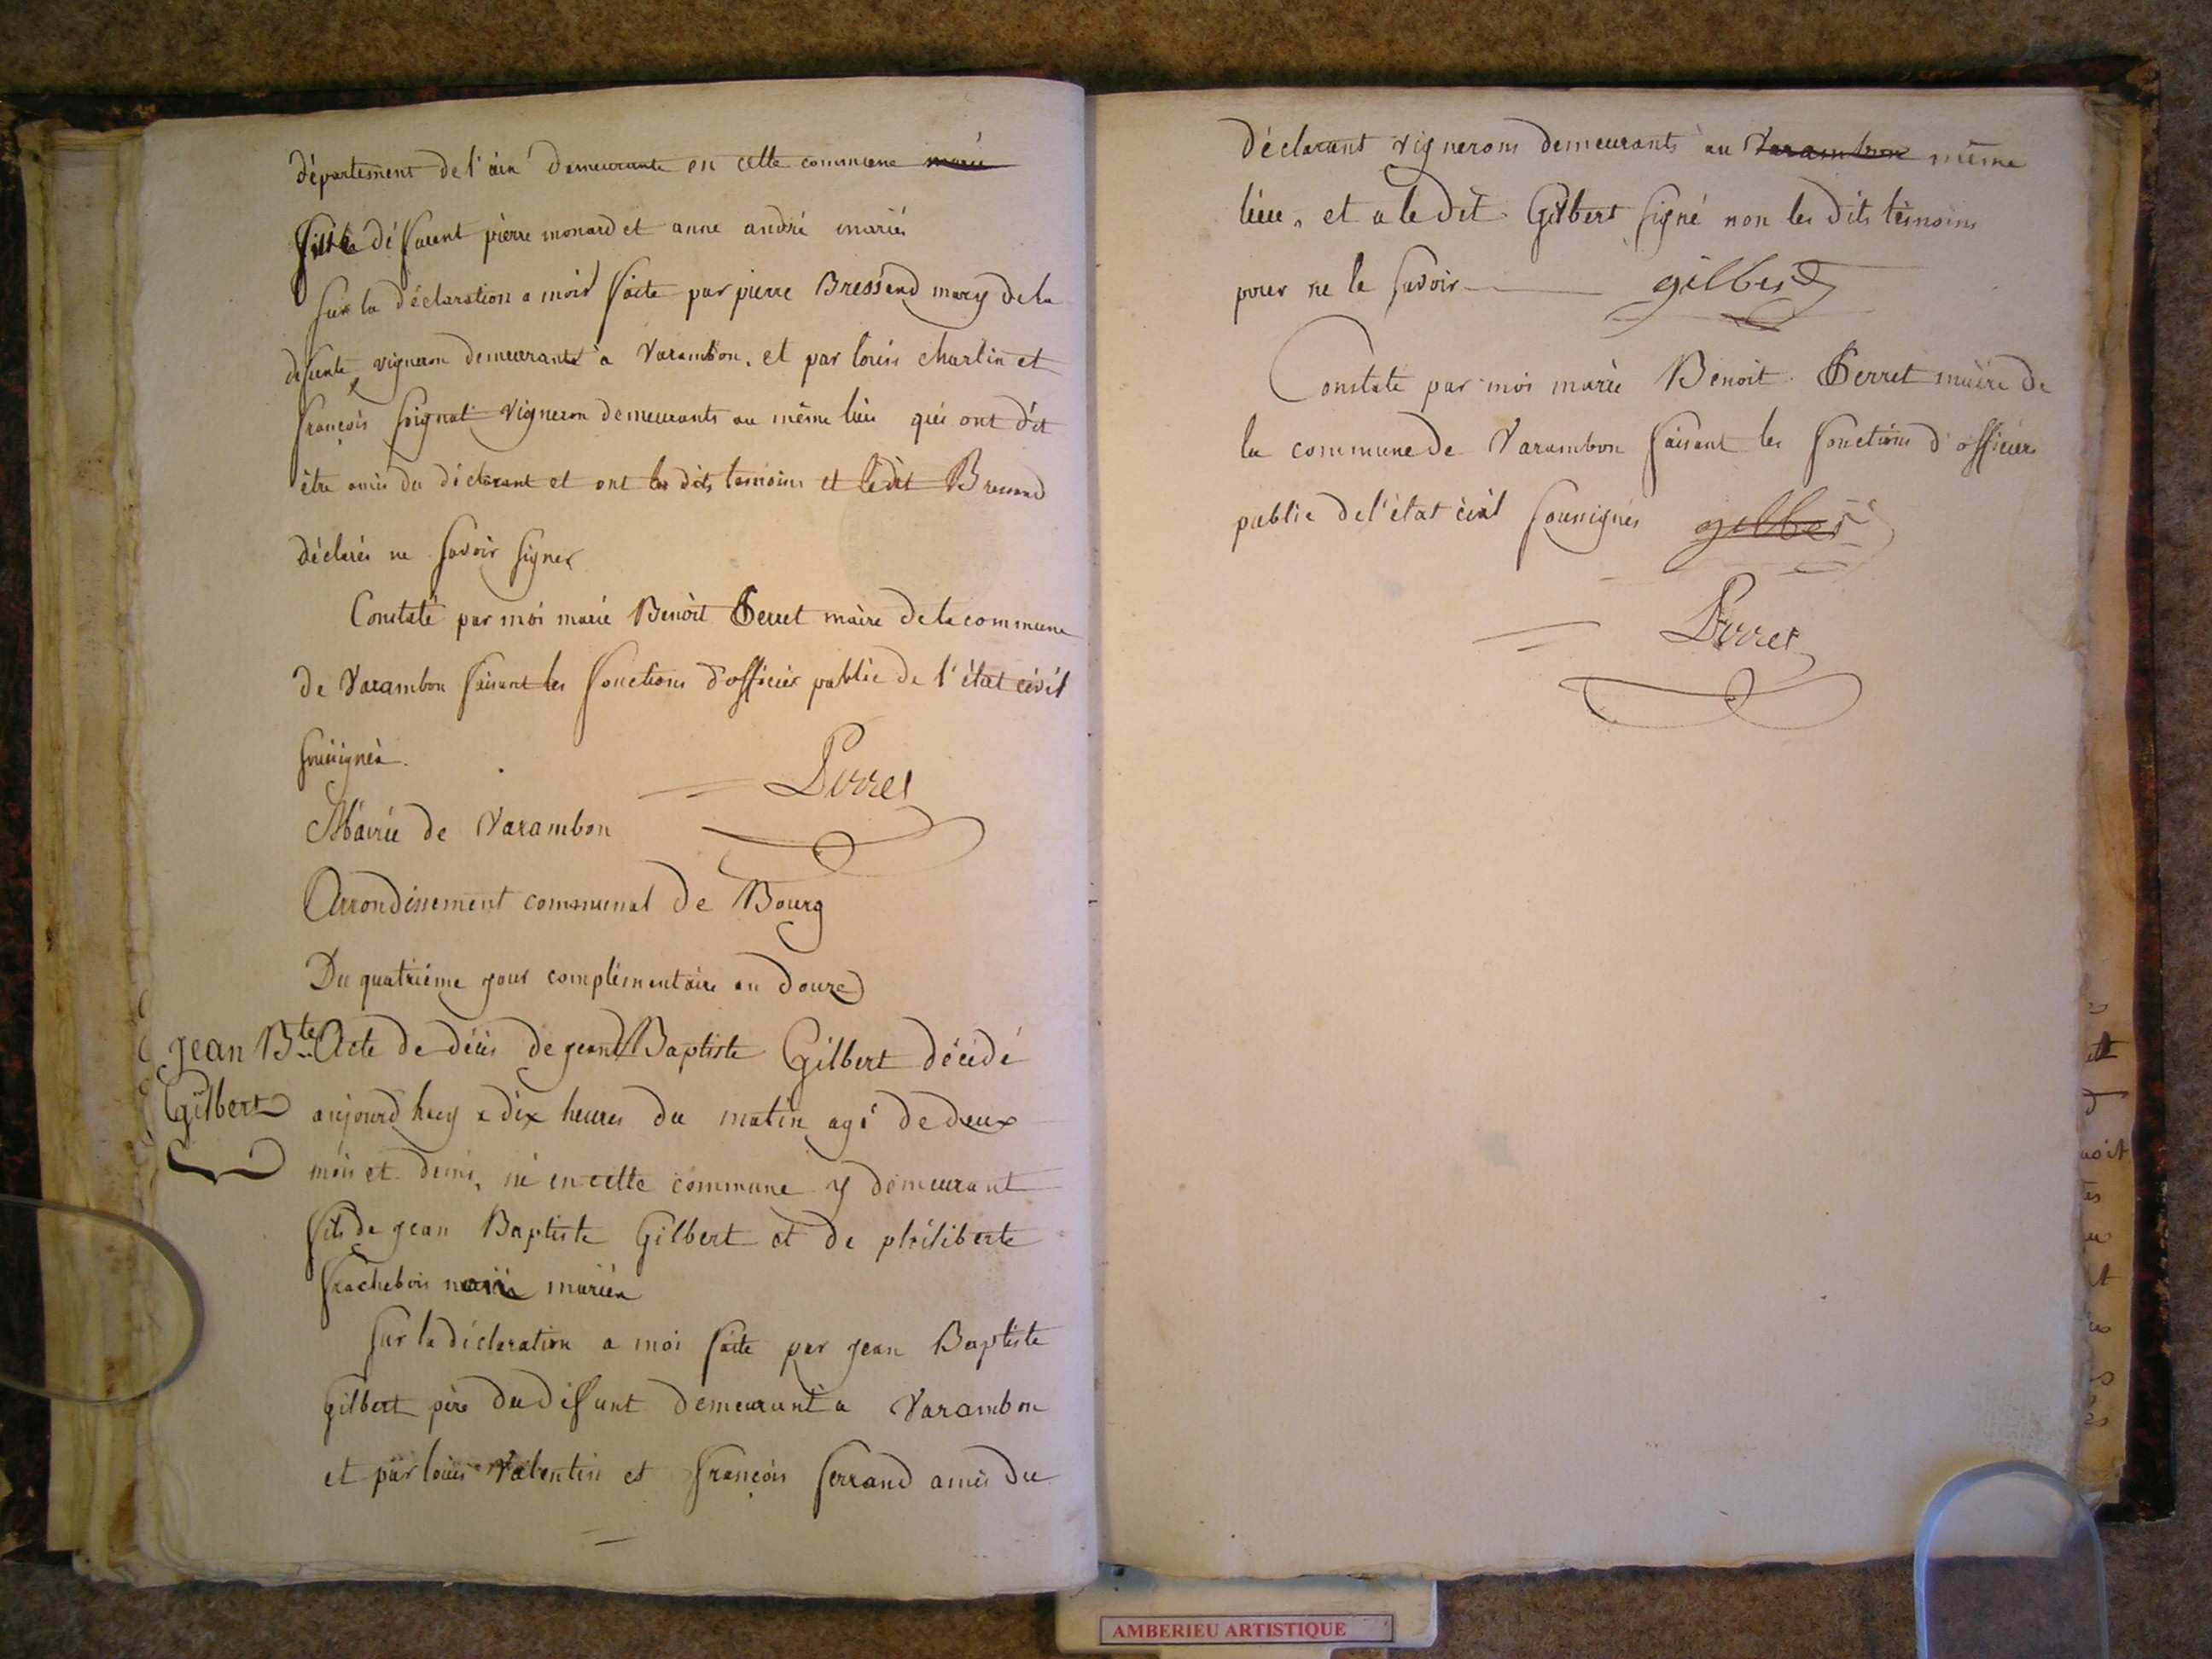 département de l'ain demeurante en cette commune marié
fille déffuent pierre monard et anne andré mariés
sur la déclaration a moi faite par pierre Bressand mary de la
defunte vigneron demeurant a Varambon, et par louis charlin et
françois soignat vigneron demeurants au même lieu qui ont dit
être amis du déclarant et ont les dits temoins et le dit Bressand
déclarés ne savoir signer
Constaté par moi marie Benoit Perret maire de la commune
de Varambon faisant les fonctions d'officier public de l'état civil
soussignés.
Perret
Mairie de Varambon
Arrondissement communal de Bourg
Du quatrième jour complémentaire an douze
jean Bte
Gilbert
Acte de décès de jean Baptiste Gilbert décédé
aujourd'huy a dix heures du matin agé de deux
mois et demi, né en cette commune y demeurant
fils de jean Baptiste Gilbert et de philiberte
frachebois mariés
Sur la déclaration a moi faite par jean Baptiste
Gilbert père du défunt demeurant a Varambon
et par louis Valentin et françois ferrand amis du
déclarant vignerons demeurants au Varambon même
lieu, et a le dit Gilbert signé non les dits témoins
pour ne le savoir
gilbert
Constaté par moi marie Benoit Perret maire de
la commune de Varambon faisant les fonctions d'officier
public de l'état civil soussignés
gilbert
Perret
AMBERIEU ARTISTIQUE